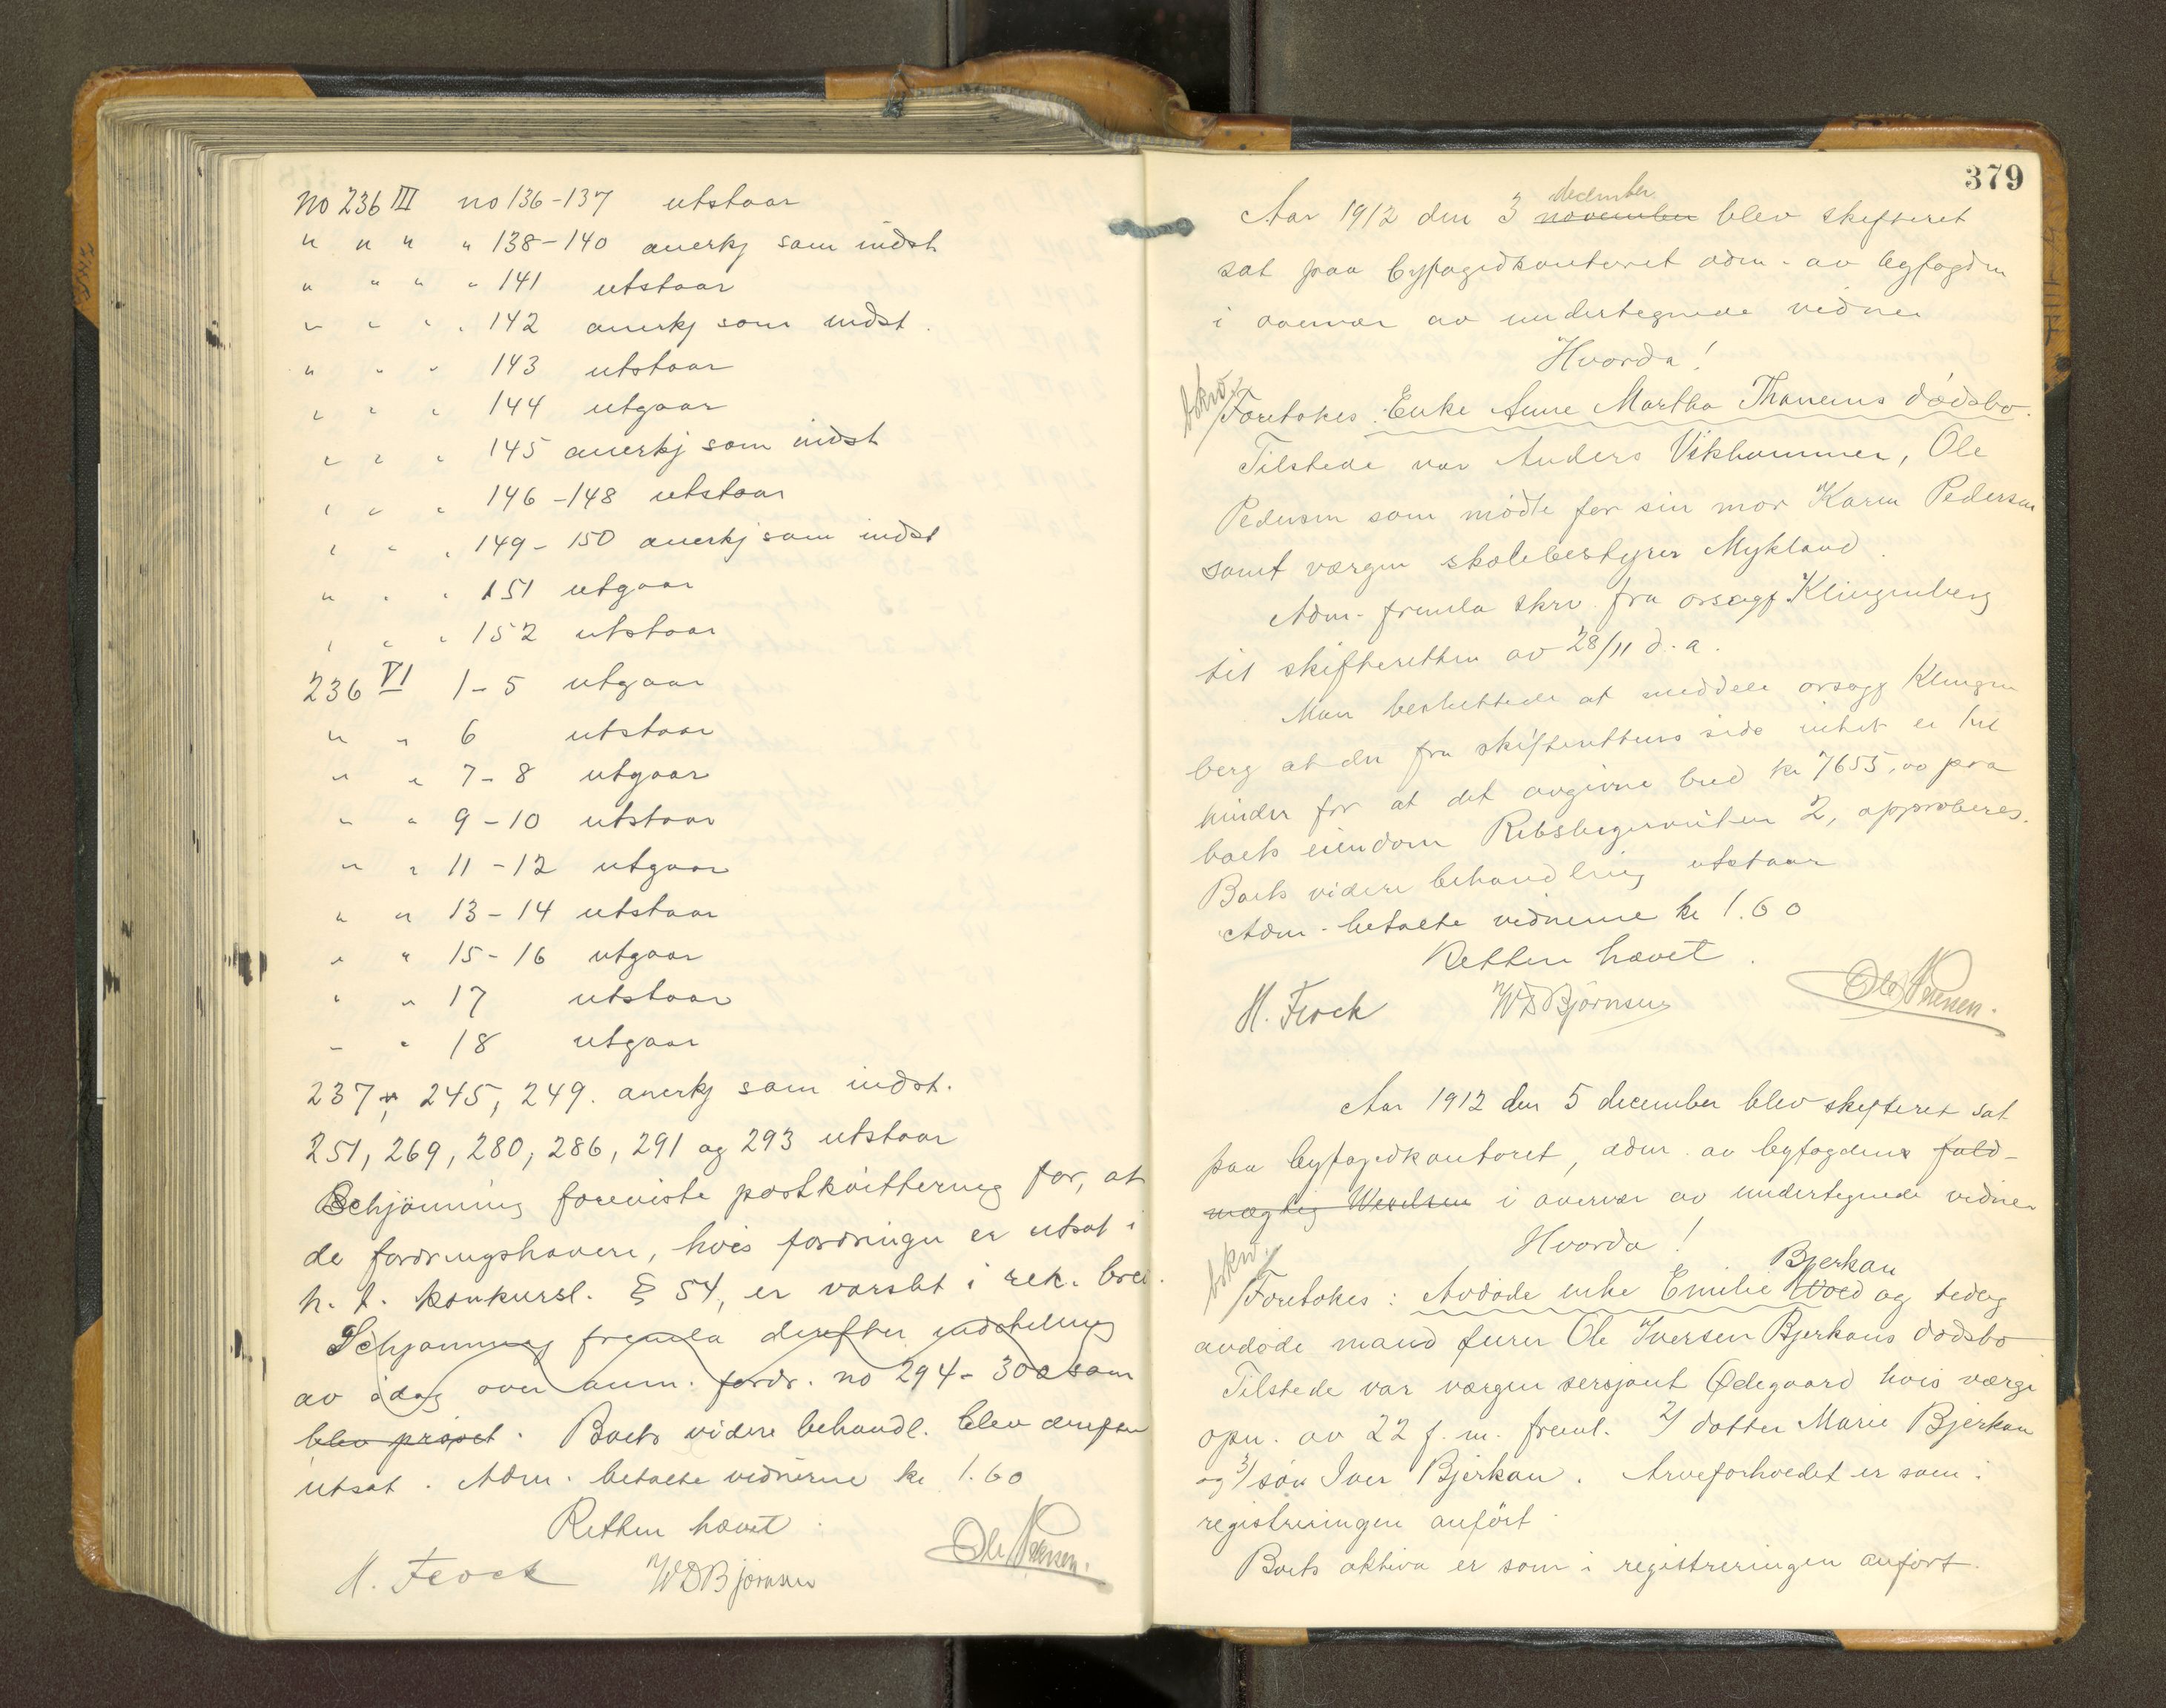 No 236 III no 136-137 utstaar
" " " " 138-140 anerkj som indst
" " " " 141 utstaar
" " " " 142 anerkj som indst.
" " " 143 utstaar
" " " 144 utgaar
" " " 145 anerkj som indst
" " " 146-148 utstaar
" " " 149-150 anerkj som indst
" " " 151 utgaar
" " " 152 utstaar
236 VI 1-5 utgaar
" " 6 utstaar
" " 7-8 utgaar
" " 9-10 utstaar
" " 11-12 utgaar
" " 13-14 utstaar
" " 15-16 utgaar
" " 17 utstaar
" " 18 utgaar
237, 245, 249. anerkj som indst.
251, 269, 280, 286, 291 og 293 utstaar
Schjönning foreviste postkvittering for, at
de fordringshavere, hvis fordringer er utsat i
h. t. konkursl. § 54, er varslet i rek. brev.
Schjønning fremla derefter indstilling
av idag over anm. fordr. no 294-300 som
blev prøvet. Boets videre behandl. blev derefter
utsat. Adm. betalte vidnerne kr 1.60
Retten hævet.
H. Flock WDBjørnsen Ole Svensen.
379
Aar 1912 den 3 november december blev skifteret
sat paa byfogedkontoret adm. av byfogden
i overvær av undertegnede vidner
Hvorda!
bskr.
Foretokes: Enke Anne Martha Thanems dødsbo.
Tilstede var Anders Vikhammer, Ole
Pedersen som mødte for sin mor Karen Pedersen
samt værgen skolebestyrer Mykland.
Adm. fremla skriv. fra orsagf Klingenberg
til skifteretten av 28/11 d. a.
Man besluttede at meddele orsagf Klingen
berg at der fra skifterettens side intet er til
hinder for at det avgivne bud kr 7655,00 paa
boets eiendom 2, approberes.
Boets videre behandling utstaar
Adm. betalte vidnerne kr 1.60
Retten hævet.
H. Flock WDBjørnsen Ole Svensen.
Aar 1912 den 5 december blev skifteret sat
paa byfogedkontoret, adm. av byfogdens fuld-
mægtig i overvær av undertegnede vidner
Hvorda!
bskr.
Foretokes: Avdøde enke Emilie Woed Bjerkan og tidlig
avdøde mand furer Ole Iversen Bjerkans dødsbo
Tilstede var værgen sersjant Ødegaard hvis værge
opn. av 22 f. m. freml. 2/ datter Marie Bjerkan
og 3/ søn Iver Bjerkan. Arveforholdet er som i
registreringen anført.
Boets aktiva er som i registreringen anført.